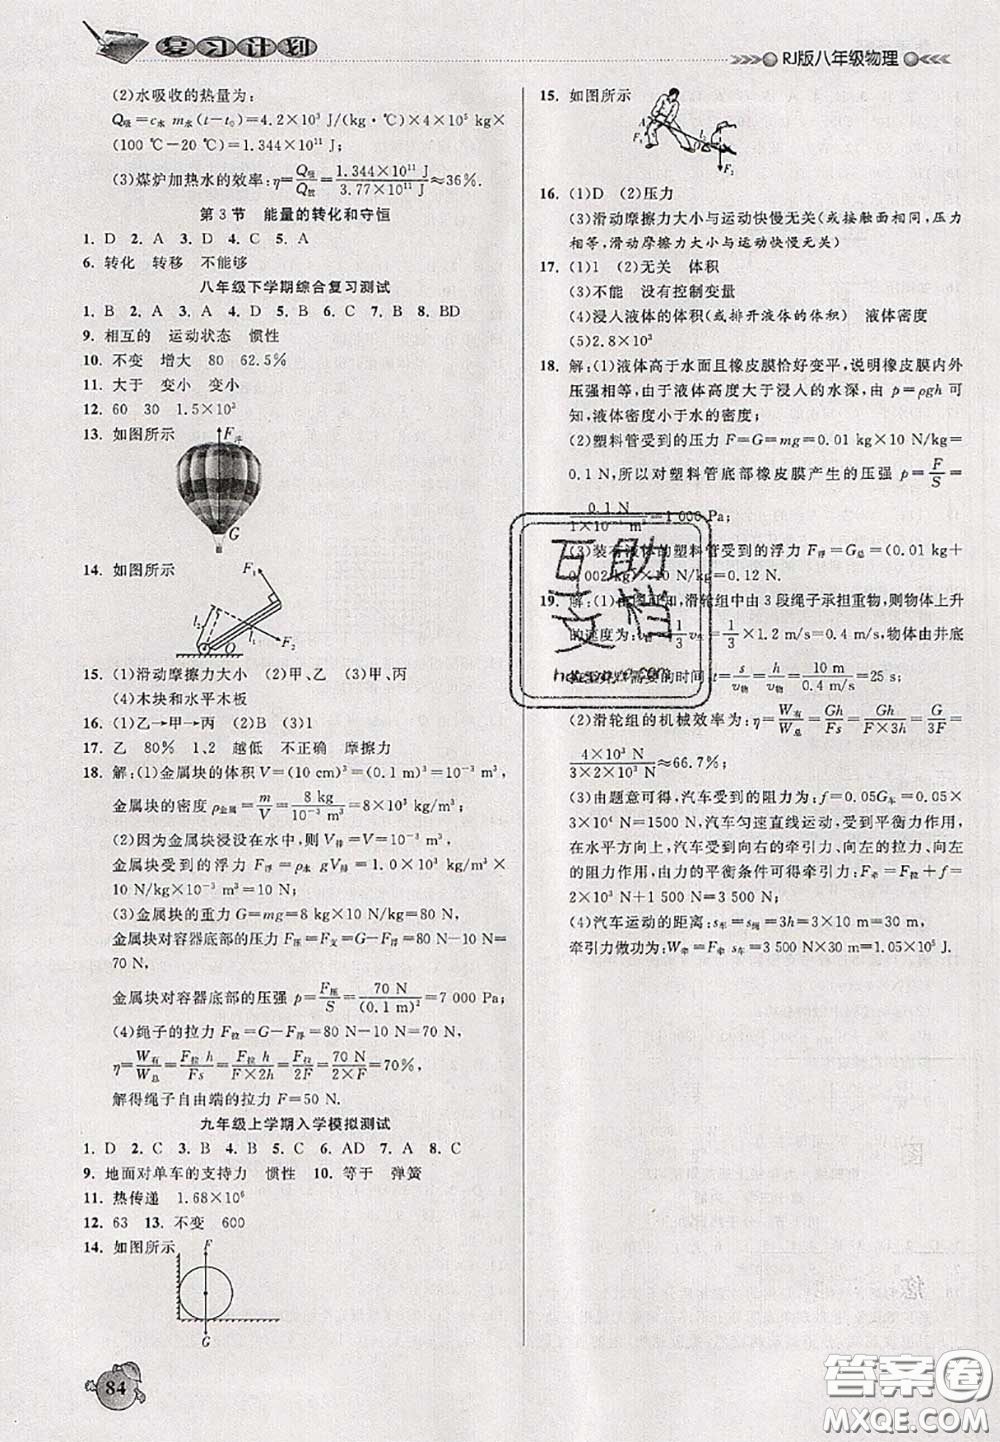 复习计划
RJ版八年级物理
(2)水吸收的热量为:
Q吸=c水 m水(t-t₀)=4.2×10³ J/(kg·℃)×4×10⁵ kg×
(100 ℃-20 ℃)=1.344×10¹¹ J;
(3)煤炉加热水的效率:η=Q吸/Q放=1.344×10¹¹ J/3.77×10¹¹ J≈36%.
第3节 能量的转化和守恒
1. D 2. A 3. D 4. C 5. A
6. 转化 转移 不能够
八年级下学期综合复习测试
1. B 2. A 3. A 4. D 5. B 6. C 7. B 8. BD
9. 相互的 运动状态 惯性
10. 不变 增大 80 62.5%
11. 大于 变小 变小
12. 60 30 1.5×10³
13. 如图所示
F浮
G
14. 如图所示
F₁
l₂
l₁
F₂
O
15. (1)滑动摩擦力大小 (2)甲、乙 (3)甲、丙
(4)木块和水平木板
16. (1)乙→甲→丙 (2)B (3)1
17. 乙 80% 1、2 越低 不正确 摩擦力
18. 解:(1)金属块的体积V=(10 cm)³=(0.1 m)³=10⁻³ m³,
金属块的密度ρ金属=m/V=8 kg/10⁻³ m³=8×10³ kg/m³;
(2)因为金属块浸没在水中,则V排=V=10⁻³ m³,
金属块受到的浮力F浮=ρ水 gV排=1.0×10³ kg/m³×
10 N/kg×10⁻³ m³=10 N;
(3)金属块的重力G=mg=8 kg×10 N/kg=80 N,
金属块对容器底部的压力F压=F支=G-F浮=80 N-10 N=
70 N,
金属块对容器底部的压强p=F压/S=70 N/(0.1 m)²=7 000 Pa;
(4)绳子的拉力F拉=G-F浮=80 N-10 N=70 N,
η=W有/W总=F拉 h/Fs=F拉 h/F×2h=F拉/2F=70 N/2×F=70%,
解得绳子自由端的拉力F=50 N.
九年级上学期入学模拟测试
1. D 2. C 3. B 4. B 5. C 6. AD 7. A 8. C
9. 地面对单车的支持力 惯性 10. 等于 弹簧
11. 热传递 1.68×10⁶
12. 63 13. 不变 600
14. 如图所示
F
G
84
15. 如图所示
A
F₁
l₂
F₂
16. (1)D (2)压力
(3)滑动摩擦力大小与运动快慢无关(或接触面相同,压力
相等,滑动摩擦力大小与运动快慢无关)
17. (1)1 (2)无关 体积
(3)不能 没有控制变量
(4)浸入液体的体积(或排开液体的体积) 液体密度
(5)2.8×10³
18. 解:(1)液体高于水面且橡皮膜恰好变平,说明橡皮膜内外
压强相等,由于液体高度大于浸入的水深,由p=ρgh可
知,液体密度小于水的密度;
(2)塑料管受到的压力F=G=mg=0.01 kg×10 N/kg=
0.1 N,所以对塑料管底部橡皮膜产生的压强p=F/S=
0.1 N/1×10⁻⁴ m²=1 000 Pa;
(3)装有液体的塑料管受到的浮力F浮=G总=(0.01 kg+
0.002 kg)×10 N/kg=0.12 N.
19. 解:(1)由图可知,滑轮组中由3段绳子承担重物,则物体上升
的速度为:v物=1/3v绳=1/3×1.2 m/s=0.4 m/s,物体由井底
需要的时间t=s/v物=h/v物=10 m/0.4 m/s=25 s;
(2)滑轮组的机械效率为:η=W有/W总=Gh/Fs=Gh/F×3h=G/3F=
4×10³ N/3×2×10³ N≈66.7%;
(3)由题意可得,汽车受到的阻力为:f=0.05G车=0.05×
3×10⁴ N=1500 N,汽车匀速直线运动,受到平衡力作用,
在水平方向上,汽车受到向右的牵引力、向左的拉力、向左
的阻力作用,由力的平衡条件可得牵引力:F牵=F拉+f=
2×10³ N+1 500 N=3 500 N;
(4)汽车运动的距离:s车=s绳=3h=3×10 m=30 m,
牵引力做功为:W牵=F牵 s车=3 500 N×30 m=1.05×10⁵ J.
互助文档
答案圈
MXQE.COM